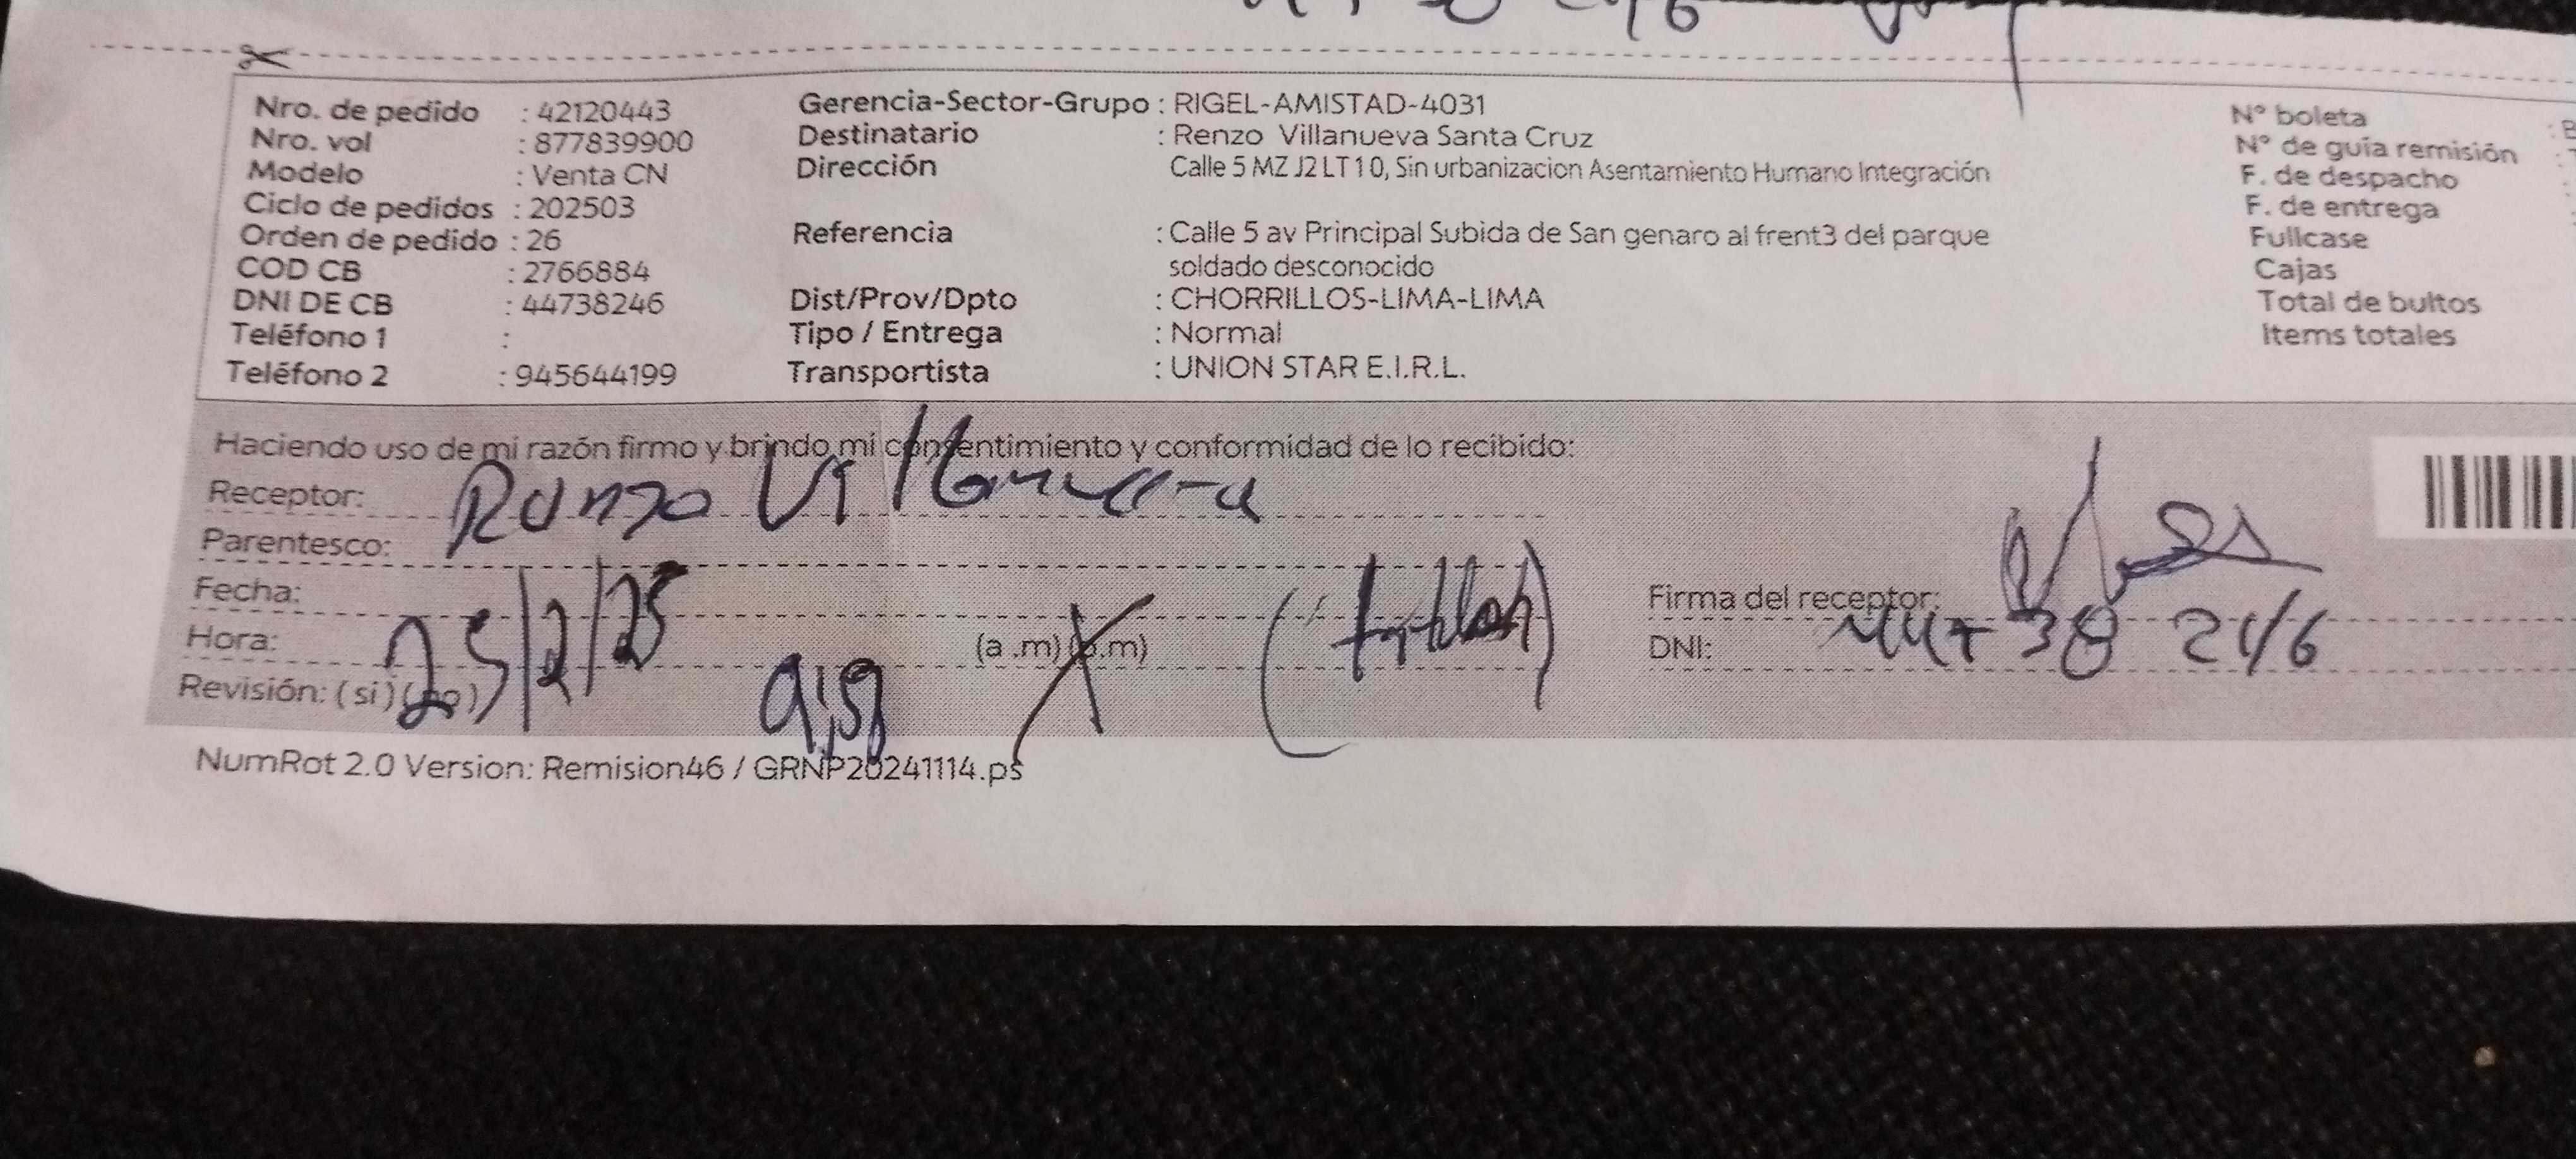 Nro. de pedido : 42120443
Nro. vol : 877839900
Modelo : Venta CN
Ciclo de pedidos : 202503
Orden de pedido : 26
COD CB : 2766884
DNI DE CB : 44738246
Teléfono 1 :
Teléfono 2 : 945644199
Gerencia-Sector-Grupo : RIGEL-AMISTAD-4031
Destinatario : Renzo Villanueva Santa Cruz
Dirección Calle 5 MZ J2 LT 1 0, Sin urbanizacion Asentamiento Humano Integración
Referencia : Calle 5 av Principal Subida de San genaro al frent3 del parque
soldado desconocido
Dist/Prov/Dpto : CHORRILLOS-LIMA-LIMA
Tipo / Entrega : Normal
Transportista : UNION STAR E.I.R.L.
N° boleta
N° de guía remisión
F. de despacho
F. de entrega
Fullcase
Cajas
Total de bultos
Items totales
Haciendo uso de mi razón firmo y brindo mi consentimiento y conformidad de lo recibido:
Receptor: Renzo Villanueva
Parentesco:
Fecha: 25/2/25
Hora: (a .m) (p.m)
Revisión: (si) (no)
Firma del receptor:
DNI: 44738246
NumRot 2.0 Version: Remision46 / GRNP20241114.ps